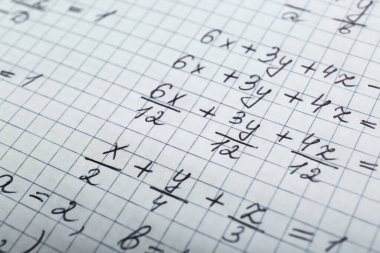 = 1
6x + 3y + 4z -
6x + 3y + 4z =
6x/12 + 3y/12 + 4z/12 =
= 1
x/2 + y/4 + z/3 = 1
a = 2,